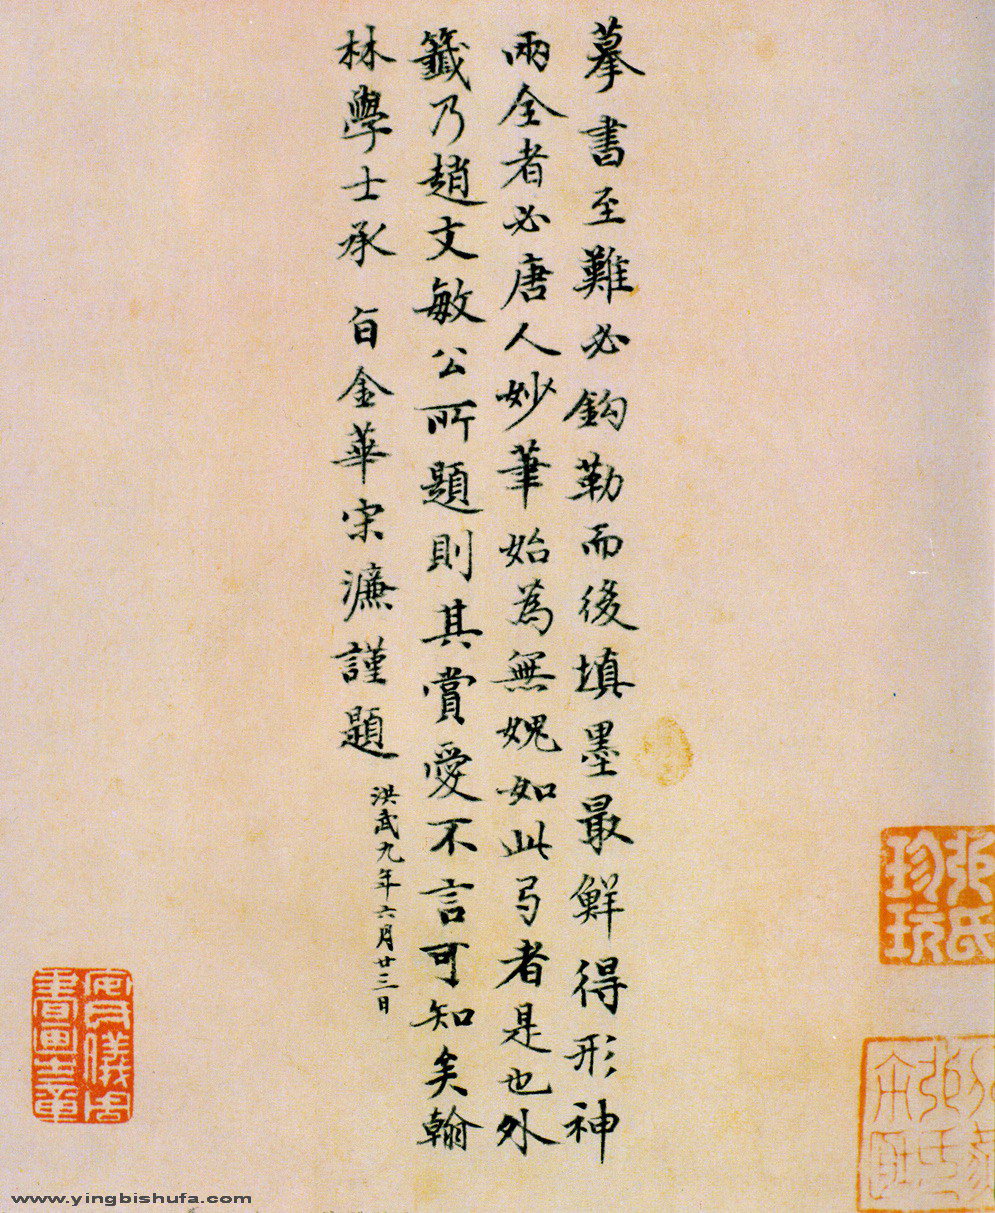 摹書至難必鈎勒而後填墨最鮮得形神
兩全者必唐人妙筆始為無媿如此弓者是也外
籤乃趙文敏公所題則其賞愛不言可知矣翰
林學士承 旨金華宋濂謹題
洪武九年六月廿三日
張氏珍玩
安儀周書畫之章
www.yingbishufa.com